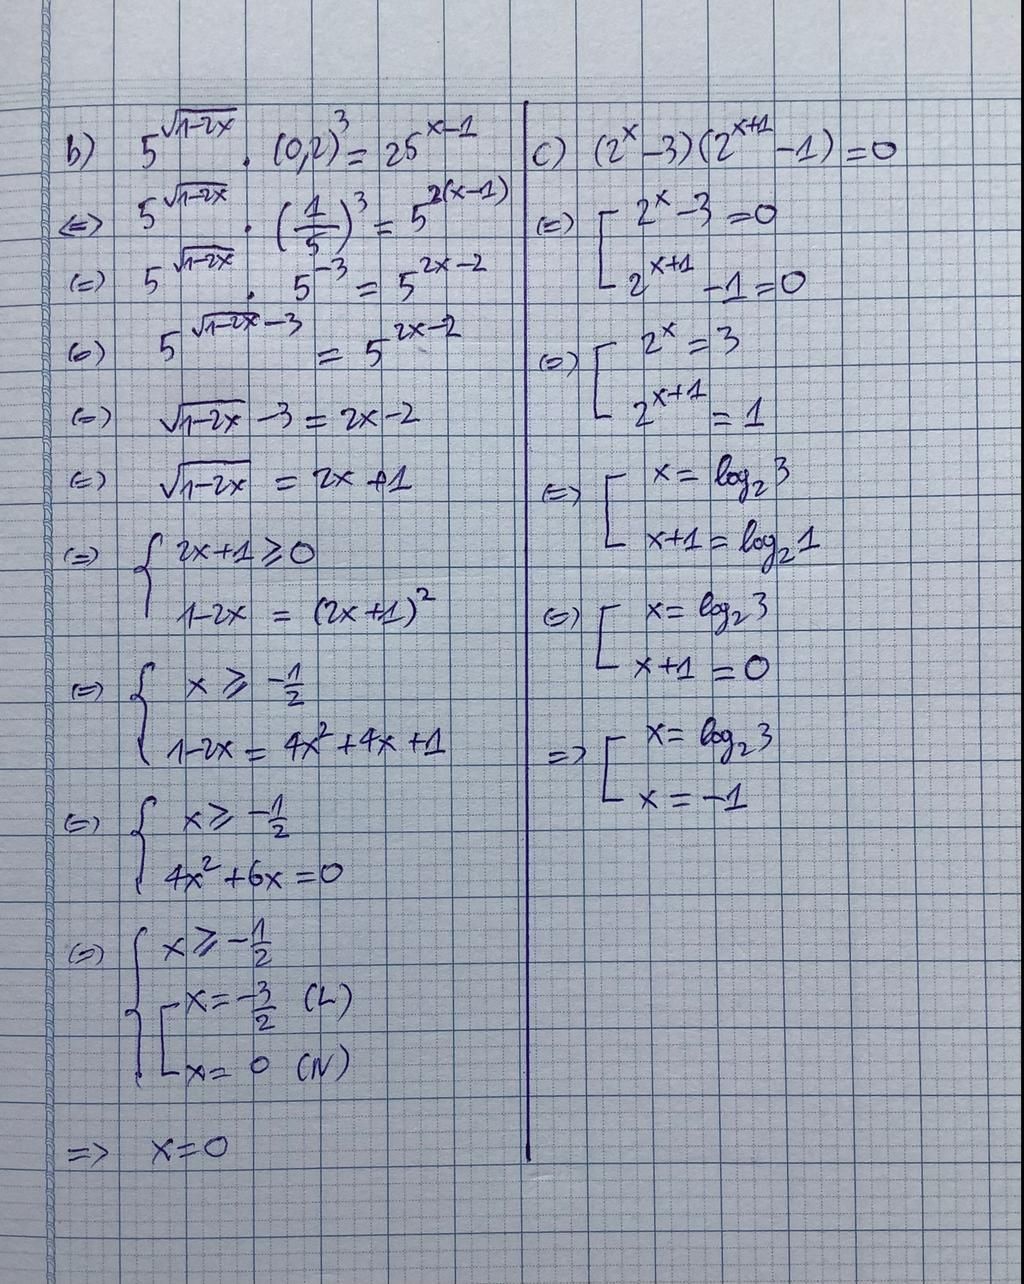 b) 5^√(1-2x) . (0,2)^3 = 25^(x-1)
<=> 5^√(1-2x) . (1/5)^3 = 5^(2(x-1))
(=) 5^√(1-2x) . 5^(-3) = 5^(2x-2)
(=) 5^(√(1-2x) -3) = 5^(2x-2)
(=) √(1-2x) -3 = 2x-2
(=) √(1-2x) = 2x+1
(=) { 2x+1 ≥ 0
1-2x = (2x+1)^2
(=) { x ≥ -1/2
1-2x = 4x^2+4x+1
(=) { x ≥ -1/2
4x^2+6x=0
(=) { x ≥ -1/2
[ x = -3/2 (L)
x = 0 (N)
=> x=0
c) (2^x-3)(2^(x+1)-1)=0
(=) [ 2^x-3=0
2^(x+1)-1=0
(=) [ 2^x=3
2^(x+1)=1
(=) [ x=log_2 3
x+1=log_2 1
(=) [ x=log_2 3
x+1=0
=> [ x=log_2 3
x=-1